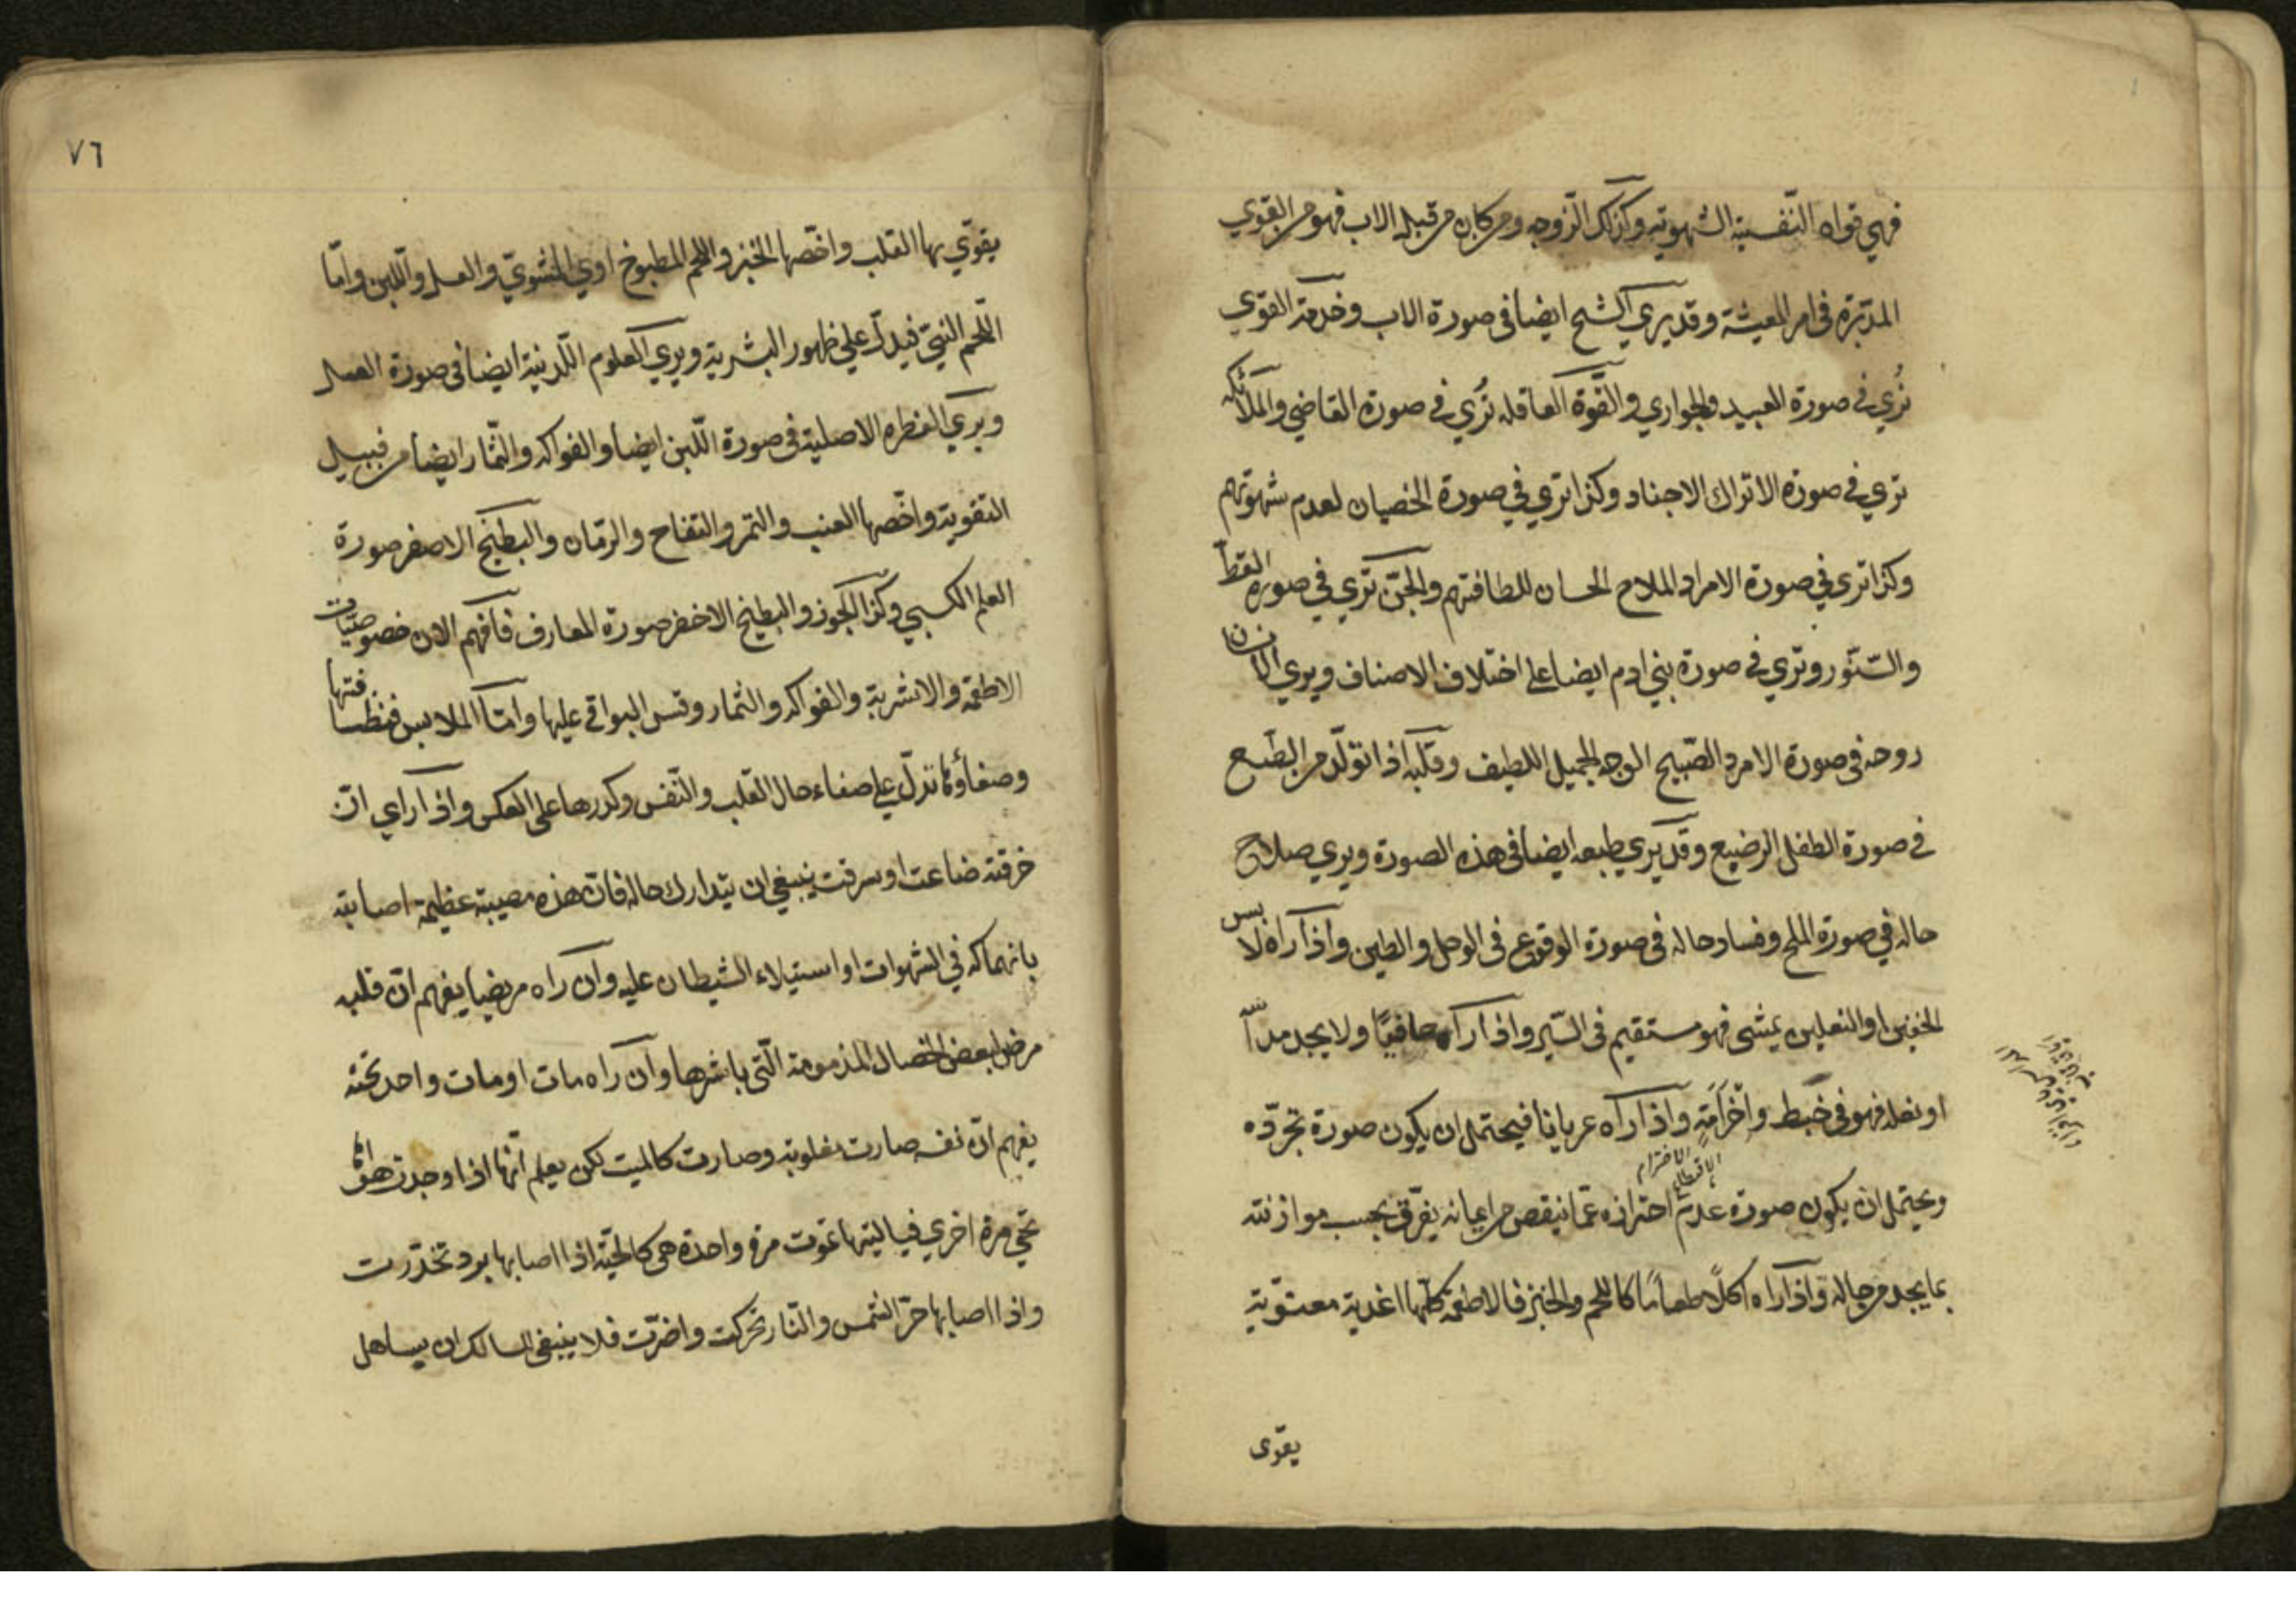 فهي قواه النّفسية الشهوتيه وكذلك الزّوجه ومن كان من قبيله الاب فهو من القوي
المدبّرة فى امر المعيشة وقد يري الشح ايضا فى صورة الاب وخدمة القوي
تُري فى صورة العبيد والجواري والقّوة العاقله تُري فى صورة القاضي والملائكه
تري فى صورة الاتراك الاجناد وكذا تري في صورة الخصيان لعدم شهوتهم
وكذا ترى في صورة الامراد الملاح الحسان للطافتهم والجنّ تري في صورة القطّ
والسّنّور وتري فى صورة بني ادم ايضا على اختلاف الاصناف ويري
روحه فى صورة الامرد الصّبيح الوجه الجميل اللطيف وقلبه اذا تولّد من الطّبع
فى صورة الطفل الرضيع وقد يري طبعه ايضا فى هذه الصورة ويري صلاح
حاله في صورة الملح وفساد حاله فى صورة الوقوع فى الوحل والطين واذا راه لابس
الخفين او النعلين يمشى فهو مستقيم فى السّير واذا راه حافيًا ولا يجد مداسًا
او نعله فهو فى خبط واخرامٍ واذا راه عريانا فيحتمل ان يكون صورة تجرّده
الاخترام
ويحتمل ان يكون صورة عدم احترازه عمّا ينقص من ايمانه يفرّق بحسب موازنته
بما يجد من حاله واذا راه اكلاً طعامًا كاللحم والخبز فالاطعمة كلّها اغذية معنوّية
يقوى
٧٦
يقوّي بها القلب واخّصها الخبز واللحم المطبوخ اوي المشويّ والعسل واللّبن وامّا
اللّحم النيّ فيدلّ على ظهور البشرية ويري العلوم اللّدنيّة ايضا فى صورة العسل
ويري الفطره الاصلية فى صورة اللّبن ايضا والفواكه والثّمار ايضا من قبيل
التقوية واخّصها العنب والتمر والتفاح والرمّان والبطيّخ الاصفر صورة
العلم الكسبي وكذا الجوز والبطيخ الاخضر صورة المعارف فافهم الان خصوصيّات
الاطعمه والاشربة والفواكه والثمار وقس البواقي عليها وامّا الملابس فنظافتها
وصفاؤها تدلّ على صفاء حال القلب والنّفس وكدرها على العكس واذا راي انّ
خرقته ضاعت او سرقت ينبغي ان يتدارك حاله فانّ هذه مصيبة عظيمة اصابته
بانهماكه في الشهوات او استيلاء الشيطان عليه وان راه مريضا يفهم انّ قلبه
مرض لبعض الخصال المذمومة الّتي باشرها وان راه مات او مات واحد تحته
يفهم انّ نفسه صارت مغلوبة وصارت كالميت لكن يعلم انّها اذا وجدت هواها
تحيي مرة اخري فيا ليتها تموت مرة واحدة هى كالحيّة اذا اصابها برد تخدّرت
واذا اصابها حرّ الشمس والنّار تحركت واضرّت فلا ينبغي للسالك ان يساهل